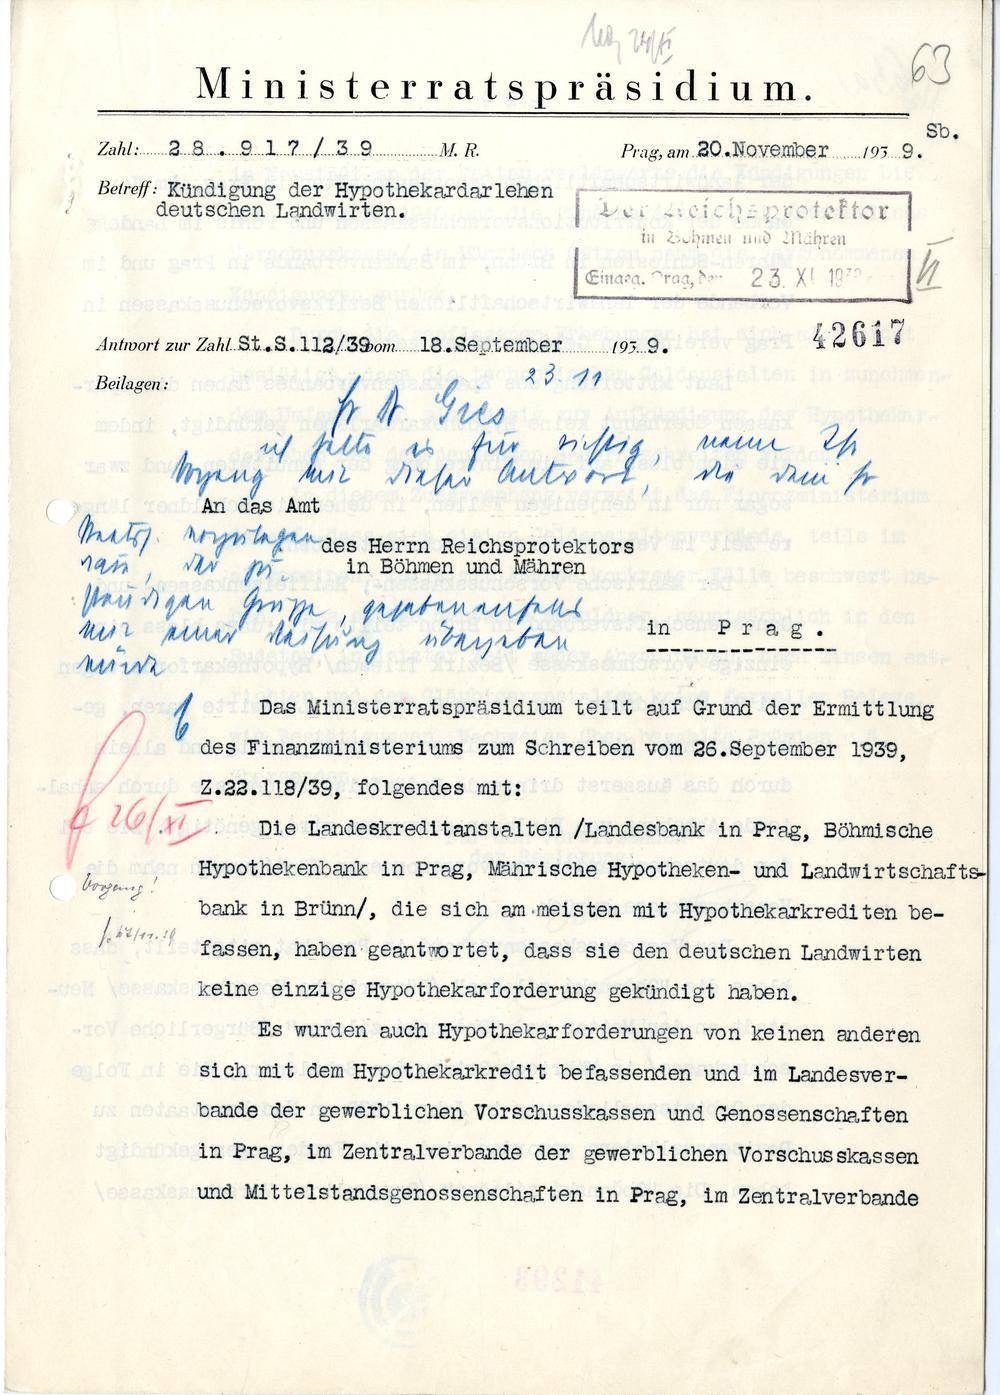 63
Ministerratspräsidium.
Sb.
Zahl: 28.917/39 M. R.
Prag, am 20.November 1939.
Betreff: Kündigung der Hypothekardarlehen
deutschen Landwirten.
Der Reichsprotektor
in Böhmen und Mähren
Eingeg. Prag, den 23. XI. 1939
II
42617
Antwort zur Zahl St.S.112/39 vom 18.September 1939.
Beilagen:
23.11
Gies
ich halte es für richtig, wenn
Vorgang mit dieser Antwort, die dem
An das Amt
des Herrn Reichsprotektors
in Böhmen und Mähren
Staatss. vorzulegen
der zu-
ständigen Gruppe, gegebenenfalls
mit einer Weisung übergeben
würde
in Prag.
Das Ministerratspräsidium teilt auf Grund der Ermittlung
des Finanzministeriums zum Schreiben vom 26.September 1939,
Z.22.118/39, folgendes mit:
26/XI
Die Landeskreditanstalten /Landesbank in Prag, Böhmische
Hypothekenbank in Prag, Mährische Hypotheken- und Landwirtschafts-
Vorgang!
bank in Brünn/, die sich am meisten mit Hypothekarkrediten be-
27/11.39
fassen, haben geantwortet, dass sie den deutschen Landwirten
keine einzige Hypothekarforderung gekündigt haben.
Es wurden auch Hypothekarforderungen von keinen anderen
sich mit dem Hypothekarkredit befassenden und im Landesver-
bande der gewerblichen Vorschusskassen und Genossenschaften
in Prag, im Zentralverbande der gewerblichen Vorschusskassen
und Mittelstandsgenossenschaften in Prag, im Zentralverbande